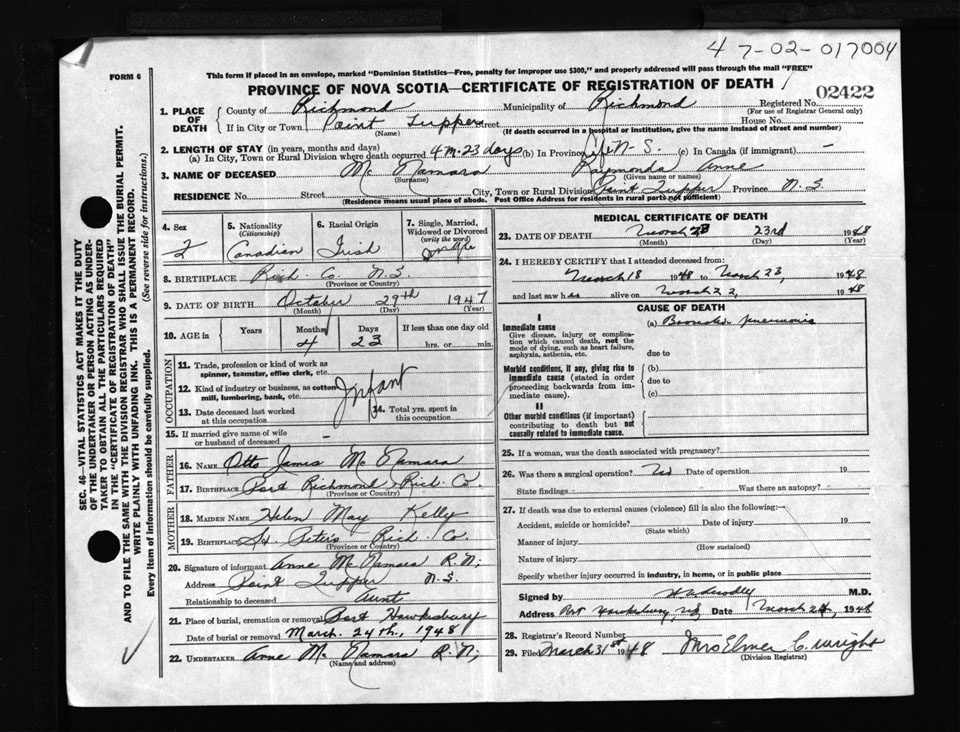 4 7-02-017004
FORM 6
This form if placed in an envelope, marked "Dominion Statistics—Free, penalty for improper use $300," and properly addressed will pass through the mail "FREE"
PROVINCE OF NOVA SCOTIA—CERTIFICATE OF REGISTRATION OF DEATH
02422
1. PLACE OF DEATH County of Richmond Municipality of Richmond Registered No.
(For use of Registrar General only)
If in City or Town Point Tupper Street House No.
(Name) (If death occurred in a hospital or institution, give the name instead of street and number)
2. LENGTH OF STAY (in years, months and days)
(a) In City, Town or Rural Division where death occurred 4 m. 23 days (b) In Province Life N. S. (c) In Canada (if immigrant) —
3. NAME OF DECEASED Mc Namara Raymonda Anne
(Surname) (Given name or names)
RESIDENCE No. Street City, Town or Rural Division Point Tupper Province N. S.
(Residence means usual place of abode. Post Office Address for residents in rural parts not sufficient)
4. Sex 5. Nationality (Citizenship) 6. Racial Origin 7. Single, Married, Widowed or Divorced (write the word)
2 Canadian Irish Single
8. BIRTHPLACE Rich. Co. N. S.
(Province or Country)
9. DATE OF BIRTH October 29th 1947
(Month) (Day) (Year)
10. AGE in Years Months Days If less than one day old
4 23 hrs. or min.
OCCUPATION
11. Trade, profession or kind of work as spinner, teamster, office clerk, etc.
12. Kind of industry or business, as cotton mill, lumbering, bank, etc. Infant
13. Date deceased last worked at this occupation 14. Total yrs. spent in this occupation
15. If married give name of wife or husband of deceased –
FATHER
16. NAME Otto James Mc Namara
17. BIRTHPLACE Port Richmond Rich. Co.
(Province or Country)
MOTHER
18. MAIDEN NAME Helen May Kelly
19. BIRTHPLACE St. Peters Rich. Co.
(Province or Country)
20. Signature of informant Anne Mc Namara R. N;
Address Point Tupper N. S.
Relationship to deceased Aunt
21. Place of burial, cremation or removal Port Hawkesbury
Date of burial or removal March. 24th., 1948
22. UNDERTAKER Anne Mc Namara R. N;
(Name and address)
MEDICAL CERTIFICATE OF DEATH
23. DATE OF DEATH March 23rd 1948
(Month) (Day) (Year)
24. I HEREBY CERTIFY that I attended deceased from:
March 18 1948 to March 23, 1948
and last saw h alive on March 22, 1948
CAUSE OF DEATH
I
Immediate cause (a) Broncho pneumonia
Give disease, injury or complication which caused death, not the mode of dying, such as heart failure, asphyxia, asthenia, etc.
due to
Morbid conditions, if any, giving rise to immediate cause (stated in order proceeding backwards from immediate cause).
(b)
due to
(c)
II
Other morbid conditions (if important) contributing to death but not causally related to immediate cause.
25. If a woman, was the death associated with pregnancy?
26. Was there a surgical operation? No Date of operation 19
State findings Was there an autopsy?
27. If death was due to external causes (violence) fill in also the following:—
Accident, suicide or homicide? Date of injury 19
(State which)
Manner of injury
(How sustained)
Nature of injury
Specify whether injury occurred in industry, in home, or in public place
Signed by M.D.
Address Port Hawkesbury, NS Date March 24, 1948
28. Registrar's Record Number
29. Filed March 31st 1948 Mrs Elmer C. Wright
(Division Registrar)
SEC. 46—VITAL STATISTICS ACT MAKES IT THE DUTY
OF THE UNDERTAKER OR PERSON ACTING AS UNDERTAKER TO OBTAIN ALL THE PARTICULARS REQUIRED
IN THE "CERTIFICATE OF REGISTRATION OF DEATH"
AND TO FILE THE SAME WITH THE DIVISION REGISTRAR WHO SHALL ISSUE THE BURIAL PERMIT.
WRITE PLAINLY WITH UNFADING INK. THIS IS A PERMANENT RECORD.
Every item of information should be carefully supplied. (See reverse side for instructions.)